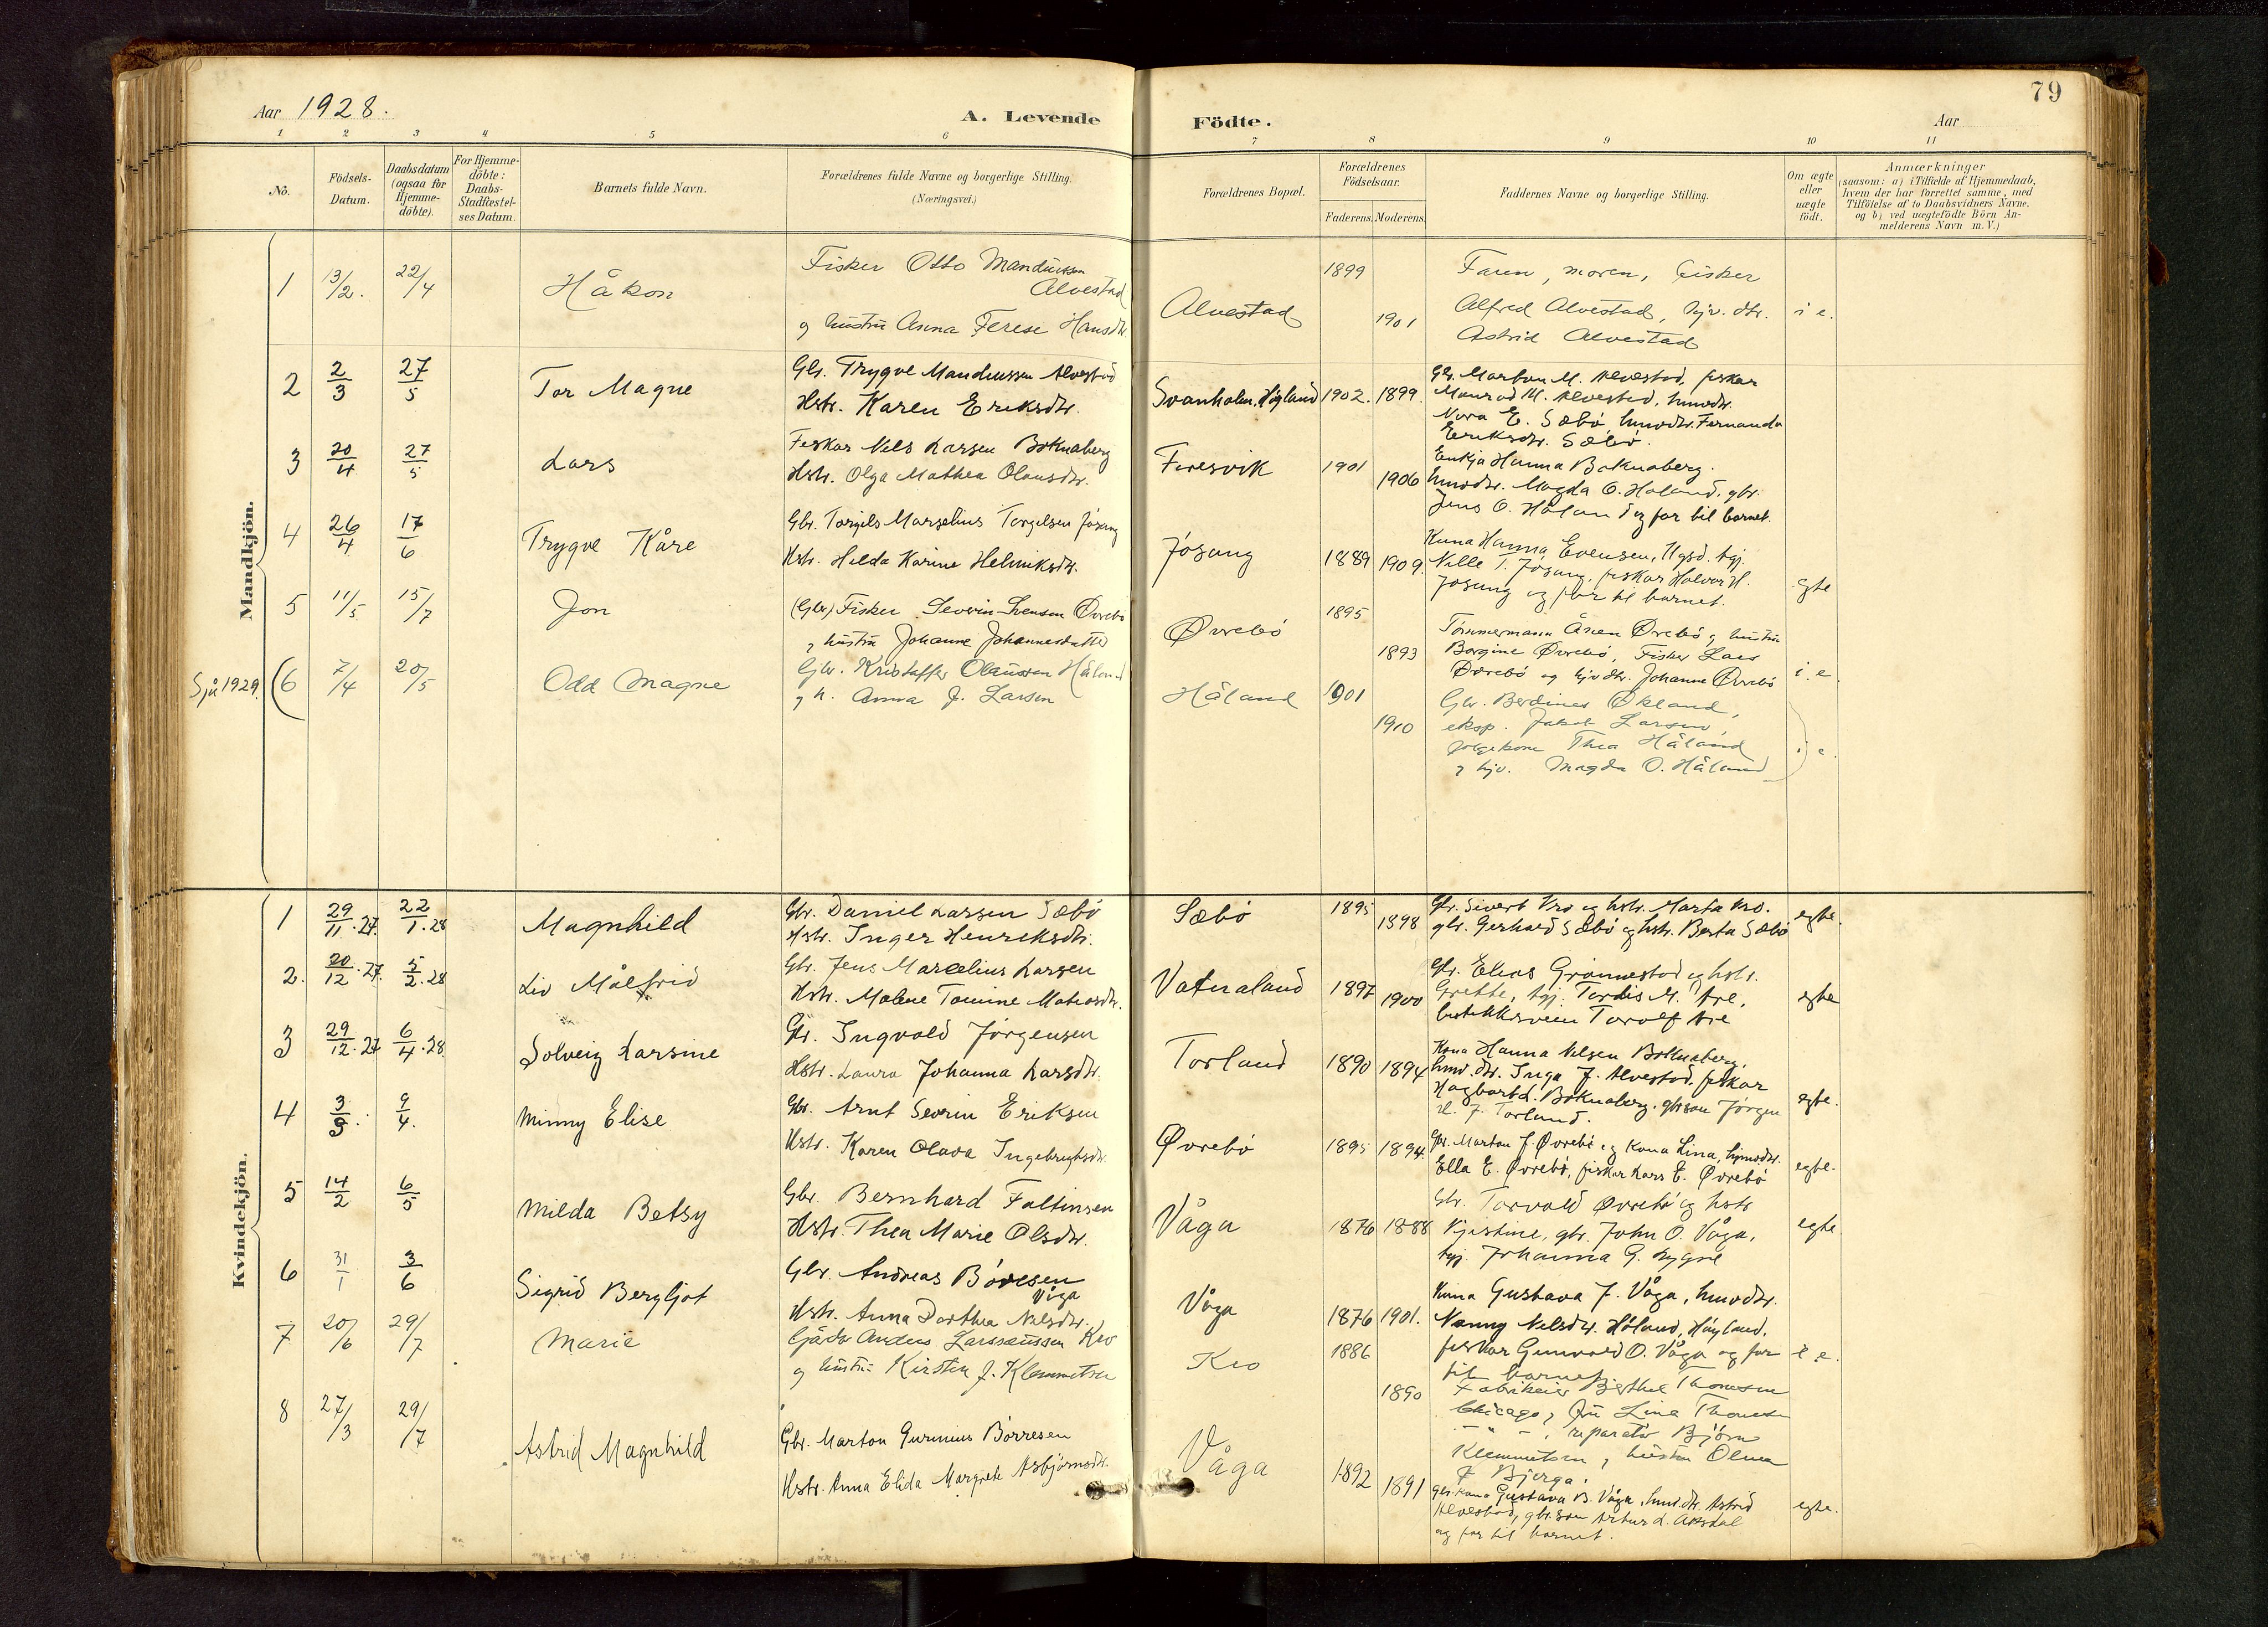 79
Aar 1928.
A. Levende Födte.
Aar
1 2 3 4 5 6 7 8 9 10 11
No.
Födsels-Datum.
Daabsdatum (ogsaa for Hjemme-döbte).
For Hjemme-döbte: Daabs-Stadfæstel-ses Datum.
Barnets fulde Navn.
Forældrenes fulde Navne og borgerlige Stilling. (Næringsvei.)
Forældrenes Bopæl.
Forældrenes Födselsaar.
Faderens. Moderens.
Faddernes Navne og borgerlige Stilling.
Om ægte eller uægte födt.
Anmærkninger
(saasom: a) i Tilfælde af Hjemmedaab,
hvem der har forrettet samme, med
Tilföielse af to Daabsvidners Navne,
og b) ved uægtefödte Börn An-
melderens Navn m. V.)
Mandkjön.
1 13/2. 22/4 Håkon
Fisker Otto Mandiussen
Alvestad
og hustru Anna Terese Hansdtr.
Alvestad 1899 1901
Faren, moren, fisker
Alfred Alvestad, hjv. dtr.
Astrid Alvestad
i e.
2 2/3 27/5 Tor Magne
Gbr. Trygve Mandiussen Alvestad
Hstr. Karen Eriksdtr.
Svanholm, Högland 1902. 1899.
Gbr. Marton M. Alvestad, fiskar
Monrad M. Alvestad, hmvdtr.
Nora E. Sæbö, hmvdtr. Fernanda
Eriksdtr. Sæbö.
3 20/4 27/5 Lars
Fiskar Nels Larsen Boknaberg
Hstr. Olga Mathea Olausdtr.
Føresvik 1901 1906
Enkja Hanna Boknaberg.
hmvdtr. Magda O. Haland, gbr.
Jens O. Håland og far til barnet.
4 26/4 17/6 Trygve Kåre
Gbr. Torgils Marselius Torgilsen Jösang
Hstr. Helda Karine Helmiksdtr.
Jösang 1889 1909.
Kuna Hanna Evensen, Hgsd. tgj.
Nille T. Jösang, fiskar Halvor H.
Jösang og far til barnet.
egte
5 11/5 15/7 Jon
(Gbr) Fisker Severin Svensen Øvrebö
og hustru Johanne Johannesdatter
Øvrebö 1895 1893
Tömmermann Ånen Øvrebö og hustru
Borgine Øvrebö, Fisker Lars
Øvrebö og hjvdtr. Johanne Øvrebö
i. e.
Sjå 1929 (6 7/4 20/5 Odd Magne
Gbr. Kristoffer Olaussen Håland
og h. Anna J. Larsen
Håland 1901 1910
Gbr. Berdines Økland,
eksp. Jakob Larsen,
Thea Håland
og hjv. Magda O. Håland
i e.
Kvindekjön.
1 29/11.27. 22/1.28 Magnhild
Gbr. Daniel Larsen Sæbö
Hstr. Inger Henriksdtr.
Sæbö 1895 1898
Gbr. Sivert Kro og hstr. Marta Kro.
gbr. Gerhard Sæbö og hstr. Berta Sæbö
egte.
2. 20/12.27. 5/2.28 Liv Målfrid
Gbr. Jens Marcelius Larsen
Hstr. Malene Tomine Matiasdtr.
Vatnaland 1897 1900
Gbr. Elias Grønnestad og hstr.
Grethe, tgj. Tordis M. Are,
butikksvein Torolf Are
egte
3 29/12.27 6/4.28 Solveig Larsine
Gbr. Ingvald Jörgensen
Hstr. Laura Johanna Larsdtr.
Torland 1890 1894
Kona Hanna Nilsen Boknaberg,
hmv.dtr. Inga J. Alvestad, fiskar
Hagbart L. Boknaberg, gbrson Jörgen
H. J. Torland.
egte.
4 3/3. 9/4. Minny Elise
Gbr. Arnt Severin Eriksen
Hstr. Karen Olava Ingebregtsdtr.
Øvrebö 1895 1894.
Gbr. Marton J. Øvrebö og Kona Lina, hjmvdtr.
Ella E. Øvrebö, fiskar Lars E. Øvrebö
egte.
5 14/2 6/5 Milda Betsy
Gbr. Bernhard Faltinsen
Hstr. Thea Marie Olsdtr.
Våga 1876 1888
Gbr. Torvald Øvrebö og hstr
Kjistine, gbr. John O. Våga,
tgj. Johanna G. Lygre
egte
6 31/1 3/6 Sigrid Bergljot
Gbr. Andreas Böresen
Våga
Hstr. Anna Dorthea Nilsdtr.
Våga 1876 1901.
Kuna Gustava J. Våga, hmvdtr.
Nanny Nilsdtr. Håland, Högland,
fiskar Gunvald O. Våga og far
til barnet.
7 20/6 29/7 Marie
Gårdbr Anders Larssaussen Kro
og hustru Kirsten J. Klemmetsen
Kro 1886 1890
Fabrikeier Berthel Thomsen
Chicago, fru Lina Thomsen
- " - , reparatör Björn
Klemmetsen, hustru Olena
J. Bjerga.
i e.
8 27/3 29/7 Astrid Magnhild
Gbr. Marton Gurinius Börresen
Hstr. Anna Elida Margrete Asbjörnsdtr.
Våga 1892 1891
Gbr. kona Gustava B. Våga, hmv.dtr. Astrid
Alvestad, gbr. son Artur L. Aksdal
og far til barnet.
egte.